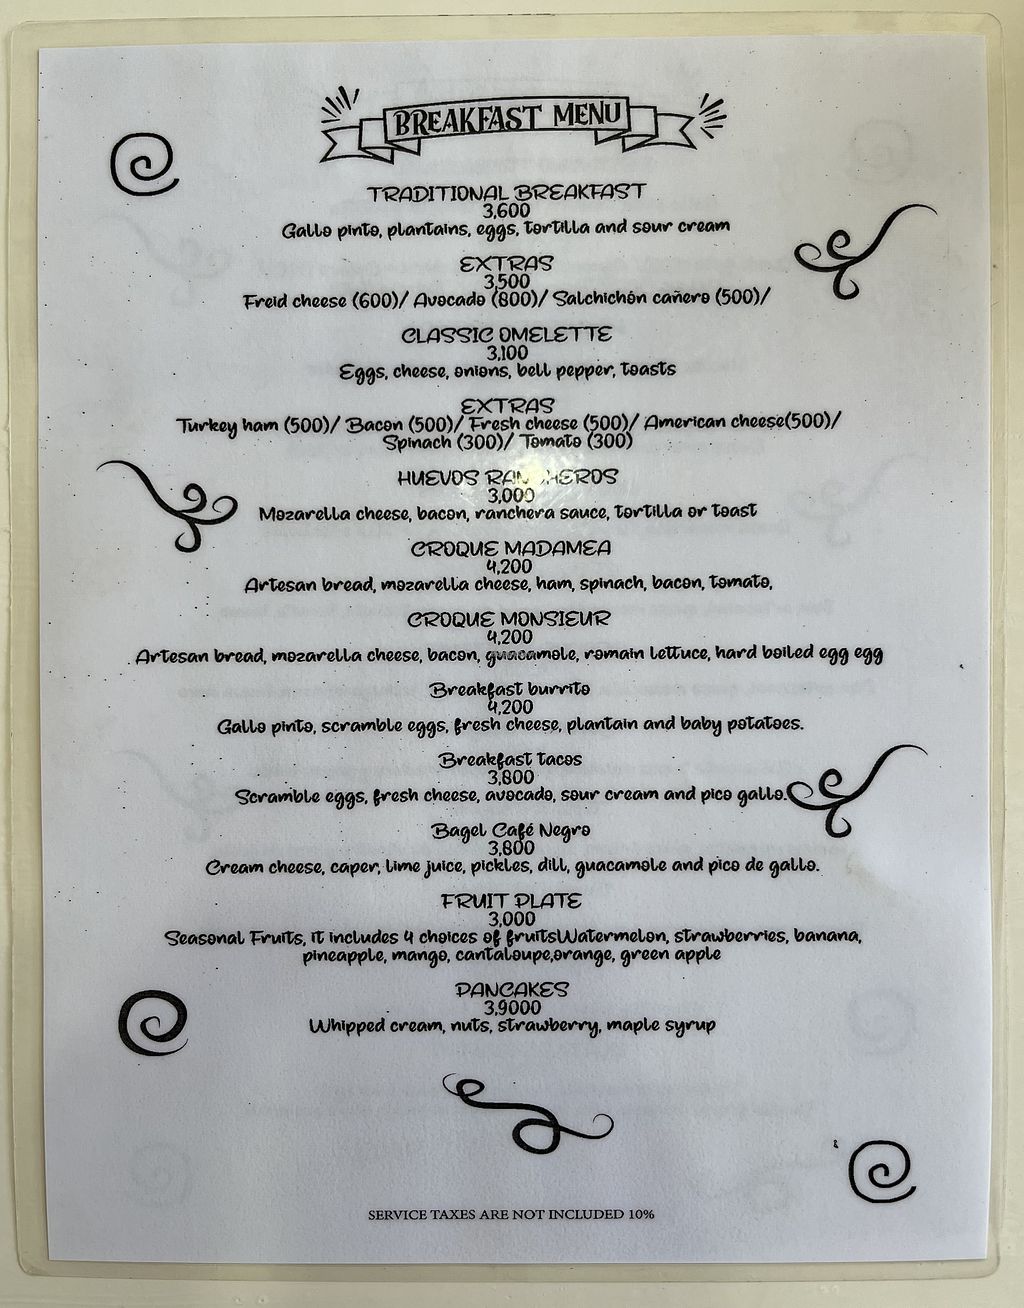 BREAKFAST MENU
TRADITIONAL BREAKFAST
3,600
Gallo pinto, plantains, eggs, tortilla and sour cream
EXTRAS
3,500
Freid cheese (600)/ Avocado (800)/ Salchichón cañero (500)/
CLASSIC OMELETTE
3,100
Eggs, cheese, onions, bell pepper, toasts
EXTRAS
Turkey ham (500)/ Bacon (500)/ Fresh cheese (500)/ American cheese(500)/
Spinach (300)/ Tomato (300)
HUEVOS RANCHEROS
3,000
Mozarella cheese, bacon, ranchera sauce, tortilla or toast
CROQUE MADAMEA
4,200
Artesan bread, mozarella cheese, ham, spinach, bacon, tomato,
CROQUE MONSIEUR
4,200
Artesan bread, mozarella cheese, bacon, guacamole, romain lettuce, hard boiled egg egg
Breakfast burrito
4,200
Gallo pinto, scramble eggs, fresh cheese, plantain and baby potatoes.
Breakfast tacos
3,800
Scramble eggs, fresh cheese, avocado, sour cream and pico gallo.
Bagel Café Negro
3,800
Cream cheese, caper, lime juice, pickles, dill, guacamole and pico de gallo.
FRUIT PLATE
3,000
Seasonal Fruits, it includes 4 choices of fruitsWatermelon, strawberries, banana,
pineapple, mango, cantaloupe,orange, green apple
PANCAKES
3,9000
Whipped cream, nuts, strawberry, maple syrup
SERVICE TAXES ARE NOT INCLUDED 10%